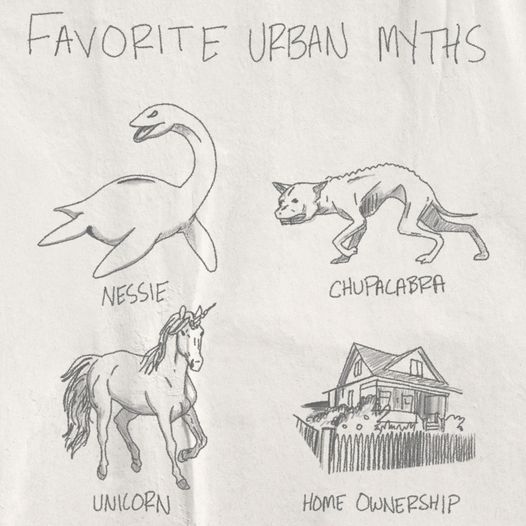 FAVORITE URBAN MYTHS
NESSIE
CHUPACABRA
UNICORN
HOME OWNERSHIP